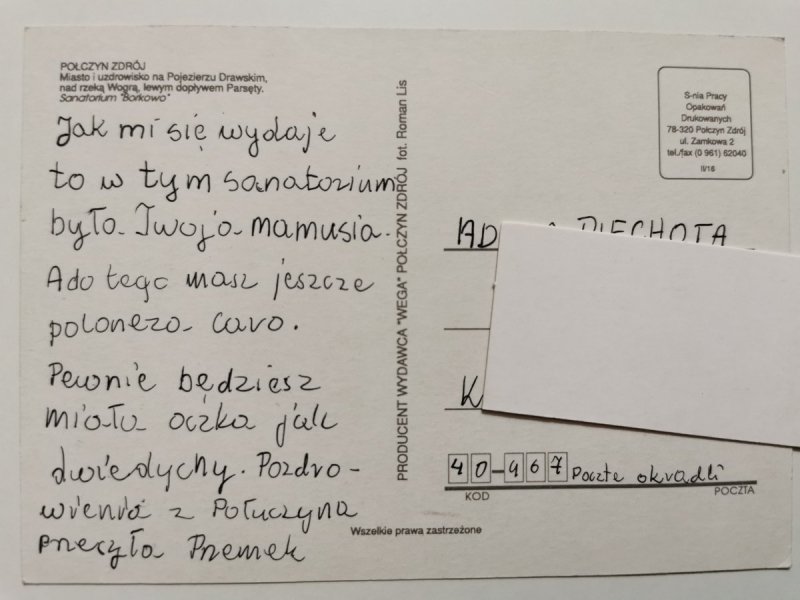 POŁCZYN ZDRÓJ
Miasto i uzdrowisko na Pojezierzu Drawskim,
nad rzeką Wogrą, lewym dopływem Parsęty.
Sanatorium "Borkowo"
Jak mi się wydaje
to w tym sanatorium
była Twoja mamusia.
A do tego masz jeszcze
poloneza caro.
Pewnie będziesz
miała oczka jak
dwie dychy. Pozdro-
wienia z Połuczyna
przeczyła Przemek
PRODUCENT WYDAWCA "WEGA" POŁCZYN ZDRÓJ fot. Roman Lis
S-nia Pracy
Opakowań
Drukowanych
78-320 Połczyn Zdrój
ul. Zamkowa 2
tel./fax (0 961) 62040
II/16
PIECHOTA
K
40-467 Poczte okradli
KOD POCZTA
Wszelkie prawa zastrzeżone